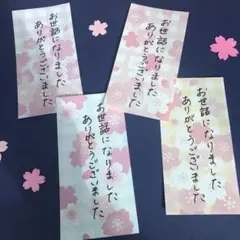 お世話になりました
ありがとうございました
お世話になりました
ありがとうございました
お世話になりました
ありがとうございました
お世話になりました
ありがとうございました